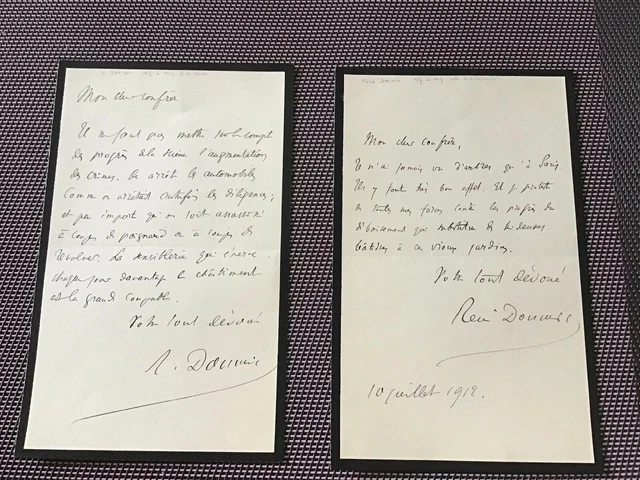 Mon cher confrère
Il ne faut pas mettre sur le compt
des progrès de la science l'augmentation
des crimes. On arrête les automobiles
comme on arrêtait autrefois les diligences ;
et peu importe qu'on soit assassiné
à coups de poignard ou à coups de
revolver. La sensiblerie qui énerve
chaque jour davantage le châtiment
est la grande coupable.
Votre tout dévoué
R. Doumic
Mon cher confrère,
Je n'ai jamais vu d'arbres qu'à Paris.
Ils y font très bon effet. Et je proteste
de toutes mes forces contre les progrès du
déboisement qui substitue de hideuses
bâtisses à ces vieux jardins.
Votre tout dévoué
René Doumic
10 juillet 1912.